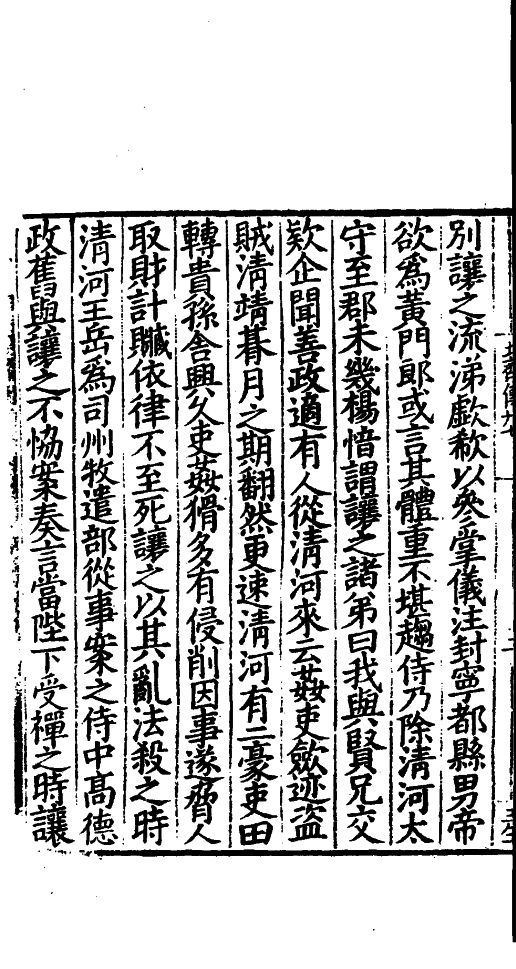 別讓之流涕歔欷以叅掌儀注封寧都縣男帝
欲爲黃門郎或言其體重不堪趨侍乃除清河太
守至郡未幾楊愔謂讓之諸弟曰我與賢兄交
欵企聞善政適有人從清河來云姦吏斂迹盜
賊清靖朞月之期翻然更速清河有二豪吏田
轉貴孫舍興久吏姦猾多有侵削因事遂脅人
取財計贓依律不至死讓之以其亂法殺之時
清河王岳爲司州牧遣部從事案之侍中髙德
政舊與讓之不恊案奏言當陛下受禪之時讓